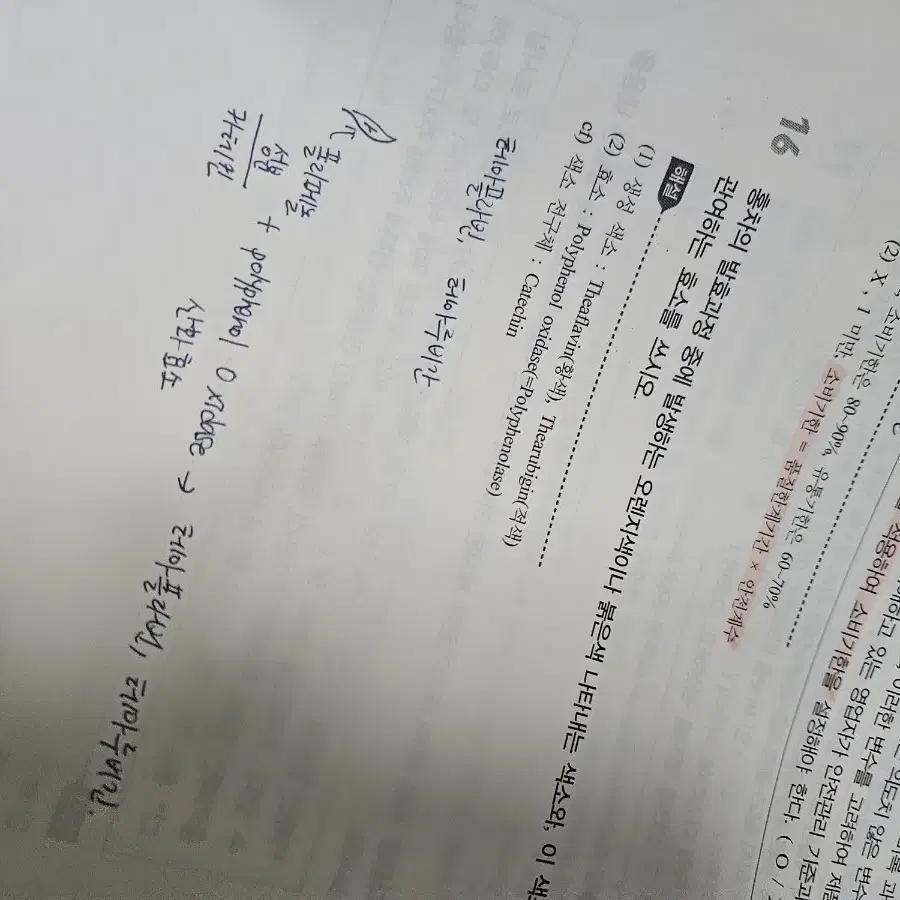 적용하여 소비기한을 설정해야 한다. ( O /
하고 있는 영업자가 안전관리 기준과
이러한 변수를 고려하여 제품
의도치 않은 변수
소비기한은 80~90%, 유통기한은 60~70%
(2) X, 1 미만, 소비기한 = 품질한계기간 × 안전계수
16
홍차의 발효과정 중에 발생하는 오렌지색이나 붉은색 나타내는 색소와, 이 색
관여하는 효소를 쓰시오.
해설
(1) 생성 색소 : Theaflavin(황색), Thearubigin(적색)
(2) 효소 : Polyphenol oxidase(=Polyphenolase)
cf) 색소 전구체 : Catechin
테아플라빈, 테아루비긴
폴리페놀 + polyphenol Oxidase → 테아플라빈, 테아루비긴.
성분
카테킨
산화효소